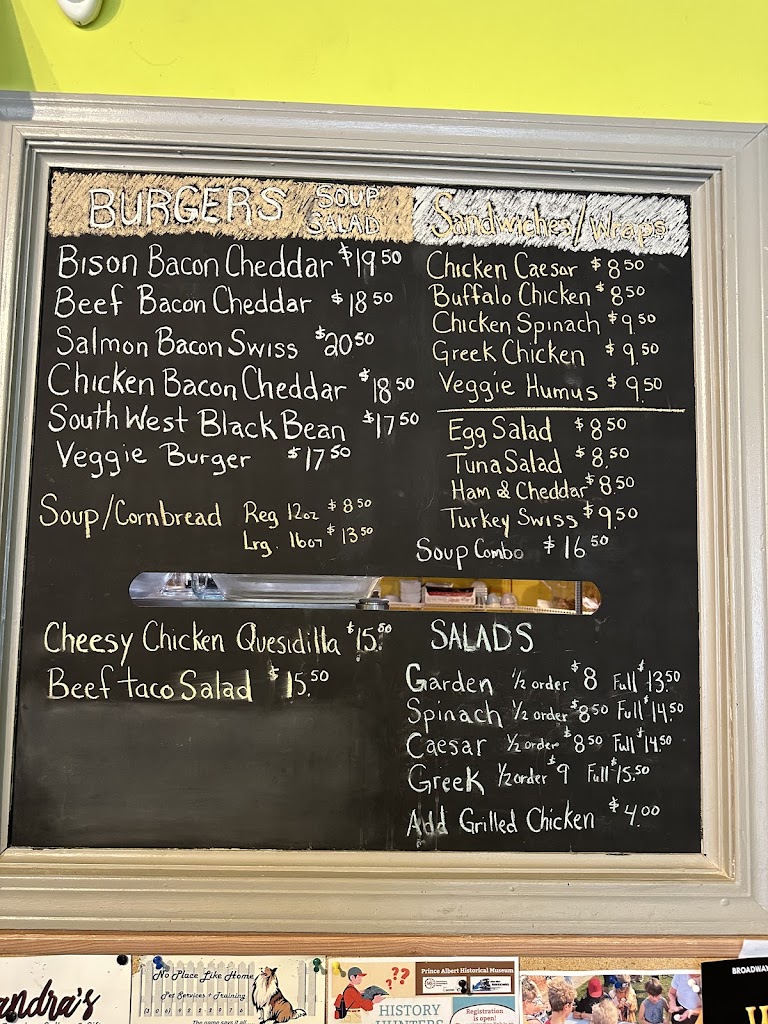 BURGERS SOUP
SALAD
Bison Bacon Cheddar $19.50
Beef Bacon Cheddar $18.50
Salmon Bacon Swiss $20.50
Chicken Bacon Cheddar $18.50
South West Black Bean $17.50
Veggie Burger $17.50
Soup/Cornbread Reg 12oz $8.50
Lrg. 16oz $13.50
Cheesy Chicken Quesidilla $15.50
Beef taco Salad $15.50
Sandwiches/Wraps
Chicken Caesar $8.50
Buffalo Chicken $8.50
Chicken Spinach $9.50
Greek Chicken $9.50
Veggie Humus $9.50
Egg Salad $8.50
Tuna Salad $8.50
Ham & Cheddar $8.50
Turkey Swiss $9.50
Soup Combo $16.50
SALADS
Garden 1/2 order $8 Full $13.50
Spinach 1/2 order $8.50 Full $14.50
Caesar 1/2 order $8.50 Full $14.50
Greek 1/2 order $9 Full $15.50
Add Grilled Chicken $4.00
andra's
No Place Like Home
Pet Services & Training
The name says it all
??
Prince Albert Historical Museum
HISTORY
HUNTERS
Registration
is open!
BROADWAY